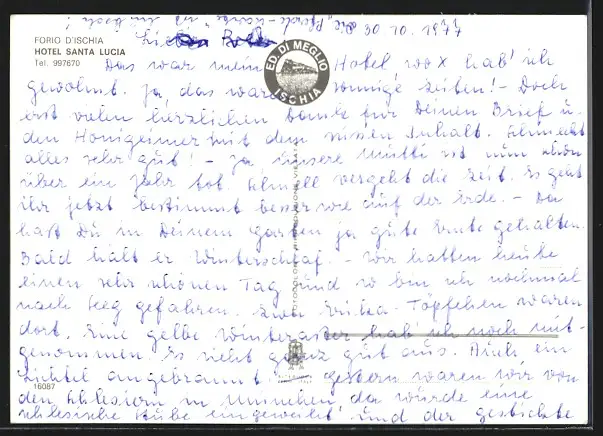 die "Pfunde-Kerle" ist im Geh!
30 10. 1977
FORIO D'ISCHIA
HOTEL SANTA LUCIA
Tel. 997670
ED. DI MEGLIO
ISCHIA
Das war mein Hotel wo x hab' ich
gewohnt. Ja, das waren sonnige Zeiten! - Doch
erst vielen herzlichen Dank für Deinen Brief u.
den Honigeimer mit dem süssen Inhalt. Schmeckt
alles sehr gut! - Ja unsere Mutti ist nun schon
über ein Jahr tot. Schnell vergeht die Zeit. Es geht
ihr jetzt bestimmt besser wie auf der Erde. - Da
hast Du in Deinem Garten ja gute Ernte gehalten.
Bald hält er Winterschlaf. - Wir hatten heute
einen sehr schönen Tag und so bin ich nochmal
nach Seeg gefahren. Zwei Erika-Töpfchen waren
dort. Eine gelbe Winteraster hab' ich noch mit-
genommen. Es sieht ganz gut aus. Auch ein
Lichtel angebrannt! gestern waren wir von
16087
den Schlesiern in München da wurde eine
schlesische Stube eingeweiht und der gestickte